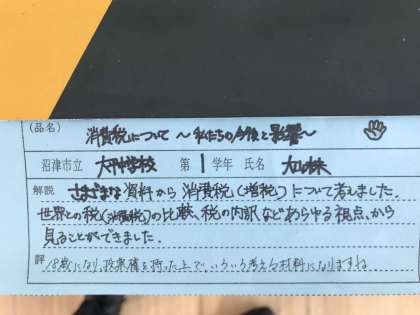 (品名)
消費税について 〜私たちの今後と影響〜
沼津市立 大平中学校 第1学年 氏名
解説 さまざまな資料から消費税(増税)について考えました.
世界との税(消費税)の比較、税の内訳などあらゆる視点、から
見ることができました.
評 18歳になり、投票権を持った上で、いろいろ考える材料になりますね